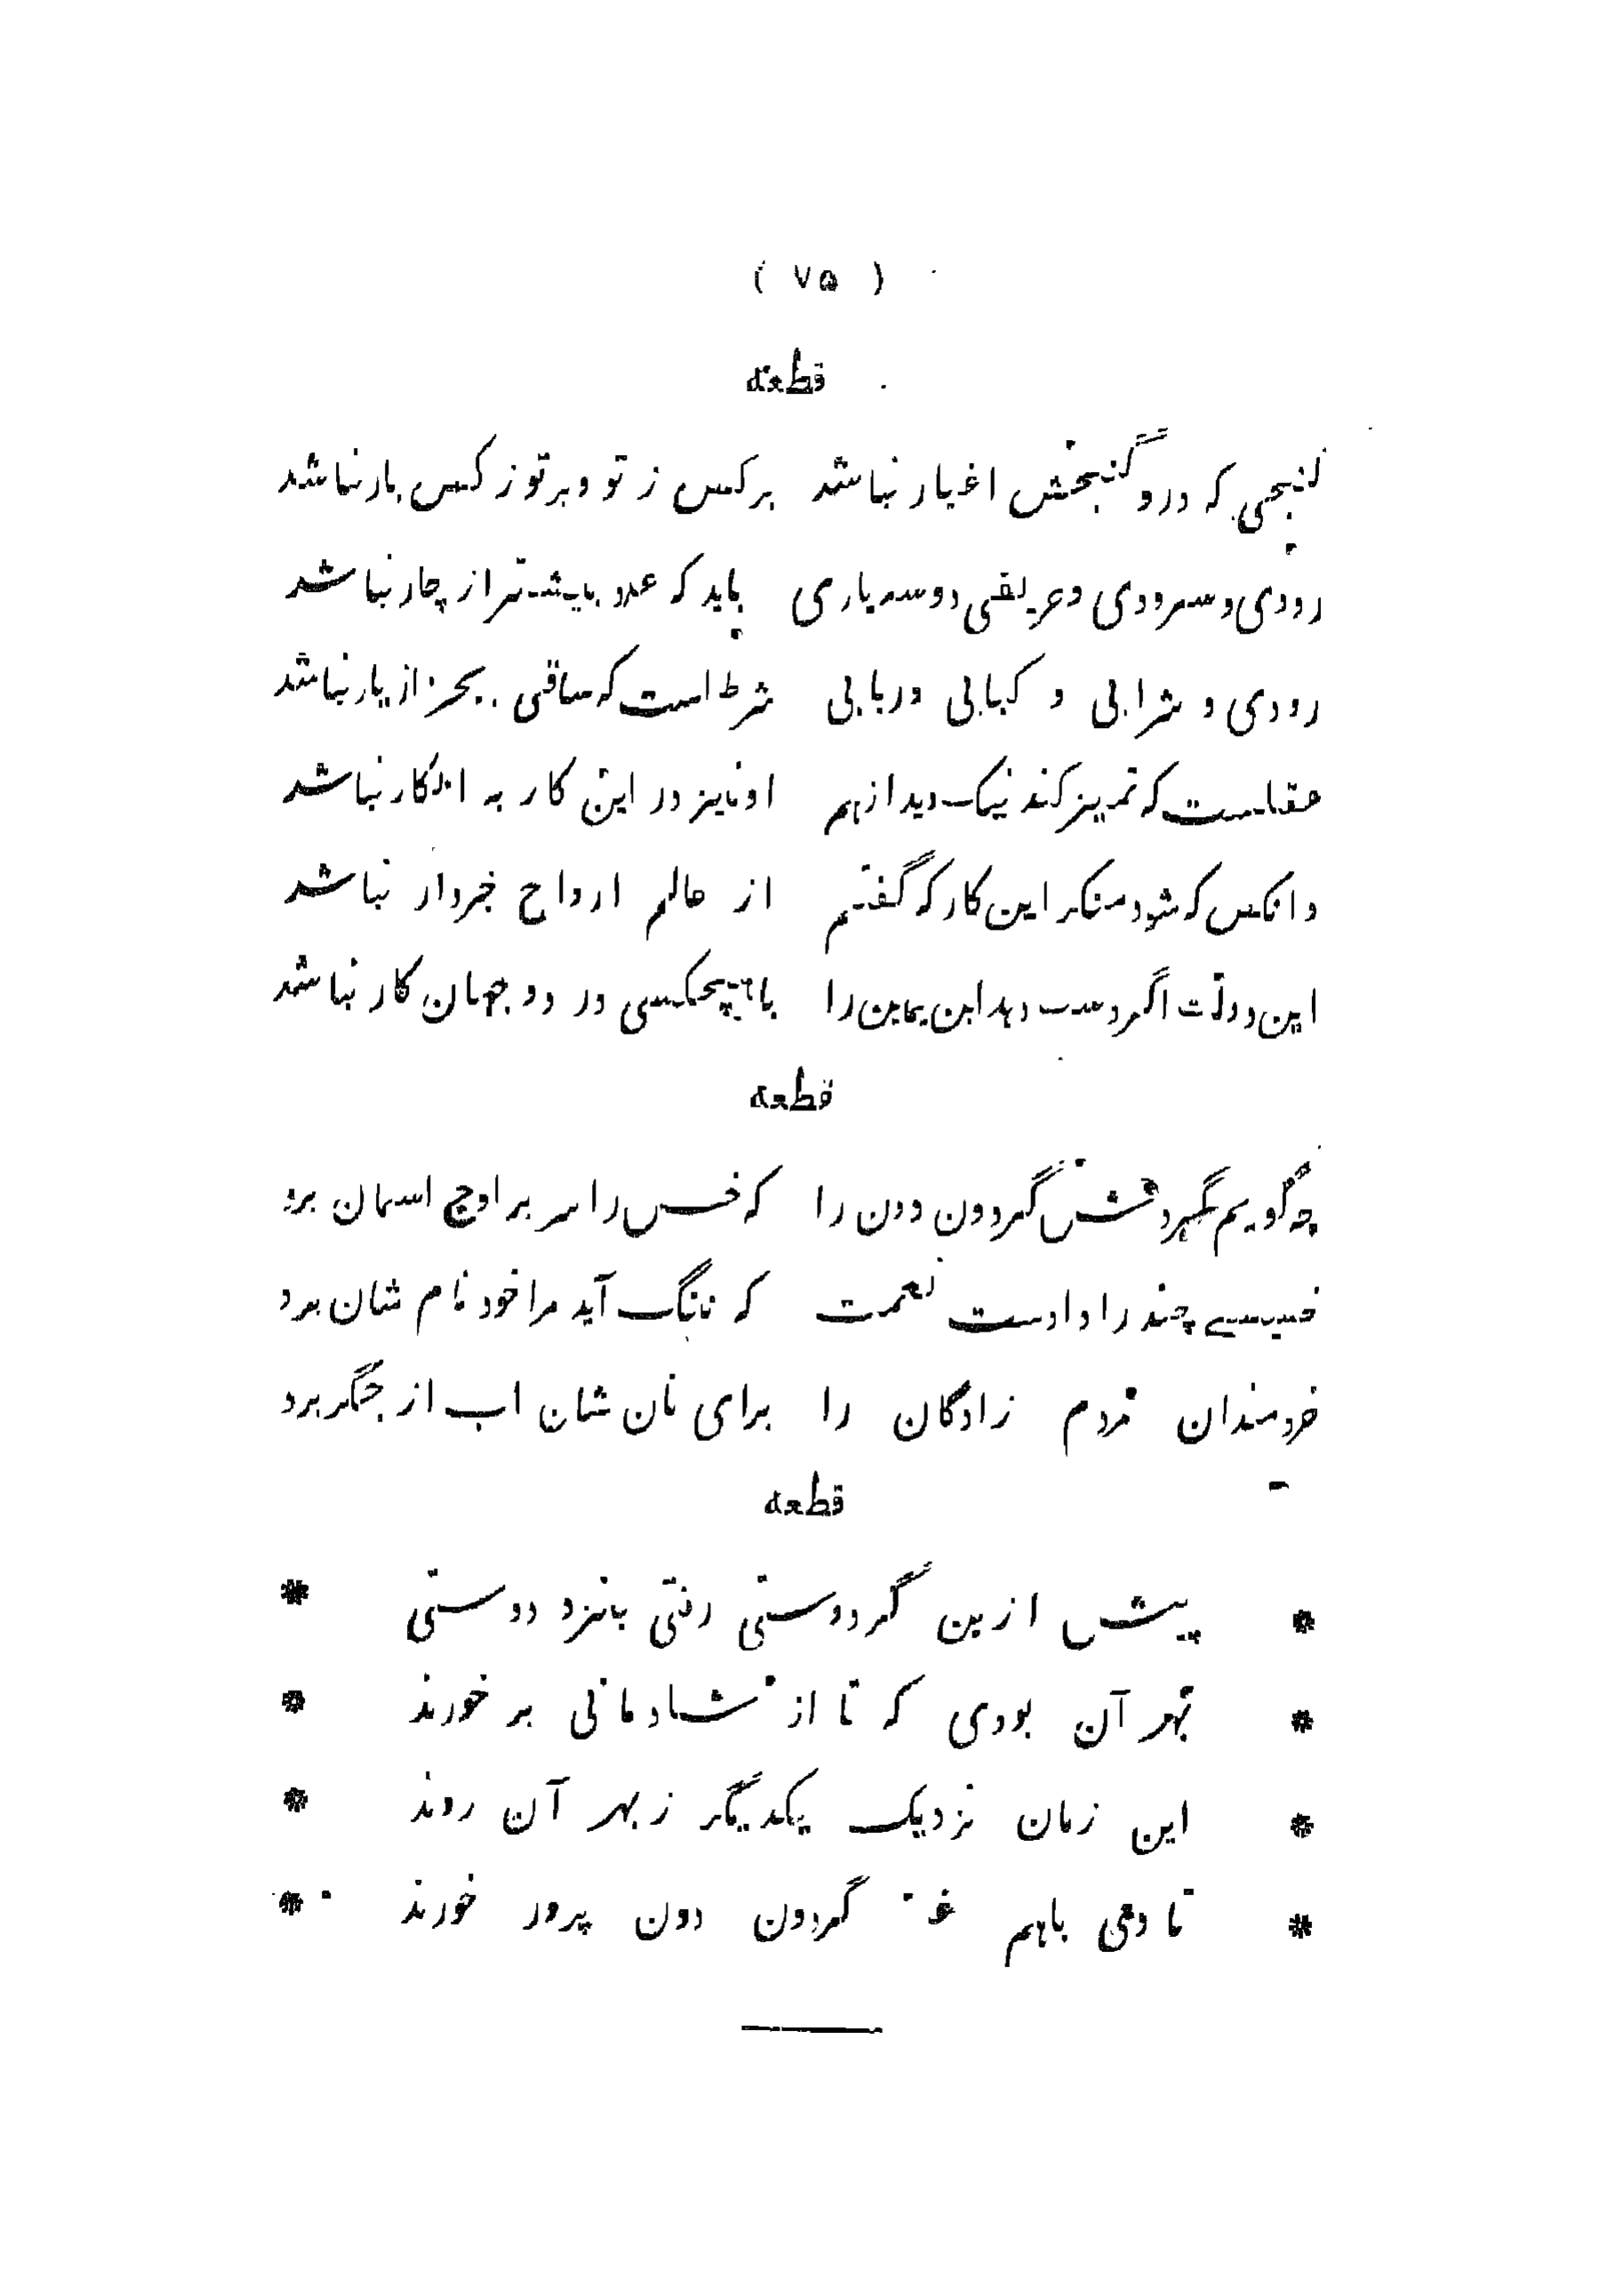 ( ۷۵ )
قطعه
کنجی که درو گنجش اغیار نباشد برکس ز تو وبر تو ز کس بار نباشد
رودی و سرودی و حریفی دوسه یاری باید که عدد بیشتر از چار نباشد
رودی و شرابی و کبابی وربابی شرط است که ساقی بجز از یار نباشد
عقلست که تمییز کند نیک و بد از هم او نیز در این کار به انکار نباشد
وانکس که شود منکر این کار که گفتم از عالم ارواح خبردار نباشد
این دولت اگر دست دهد ابن یمین را با هیچکسی در دو جهان کار نباشد
قطعه
چه گویم گردش گردون دون را که خس را سر بر اوج اسمان برد
خسیسے چند را دادست نعمت که ننگ آید مرا خود نام شان برد
خردمندان مردم زادگان را برای نان شان اب از جگر برد
قطعه
* پیش ازین گر دوستی رفتی بنزد دوستی *
* بهر آن بودی که تا از شادمانی بر خورند *
* این زمان نزدیک یکدیگر ز بهر آن روند *
* تا دمی باهم غم گردون دون پرور خورند *